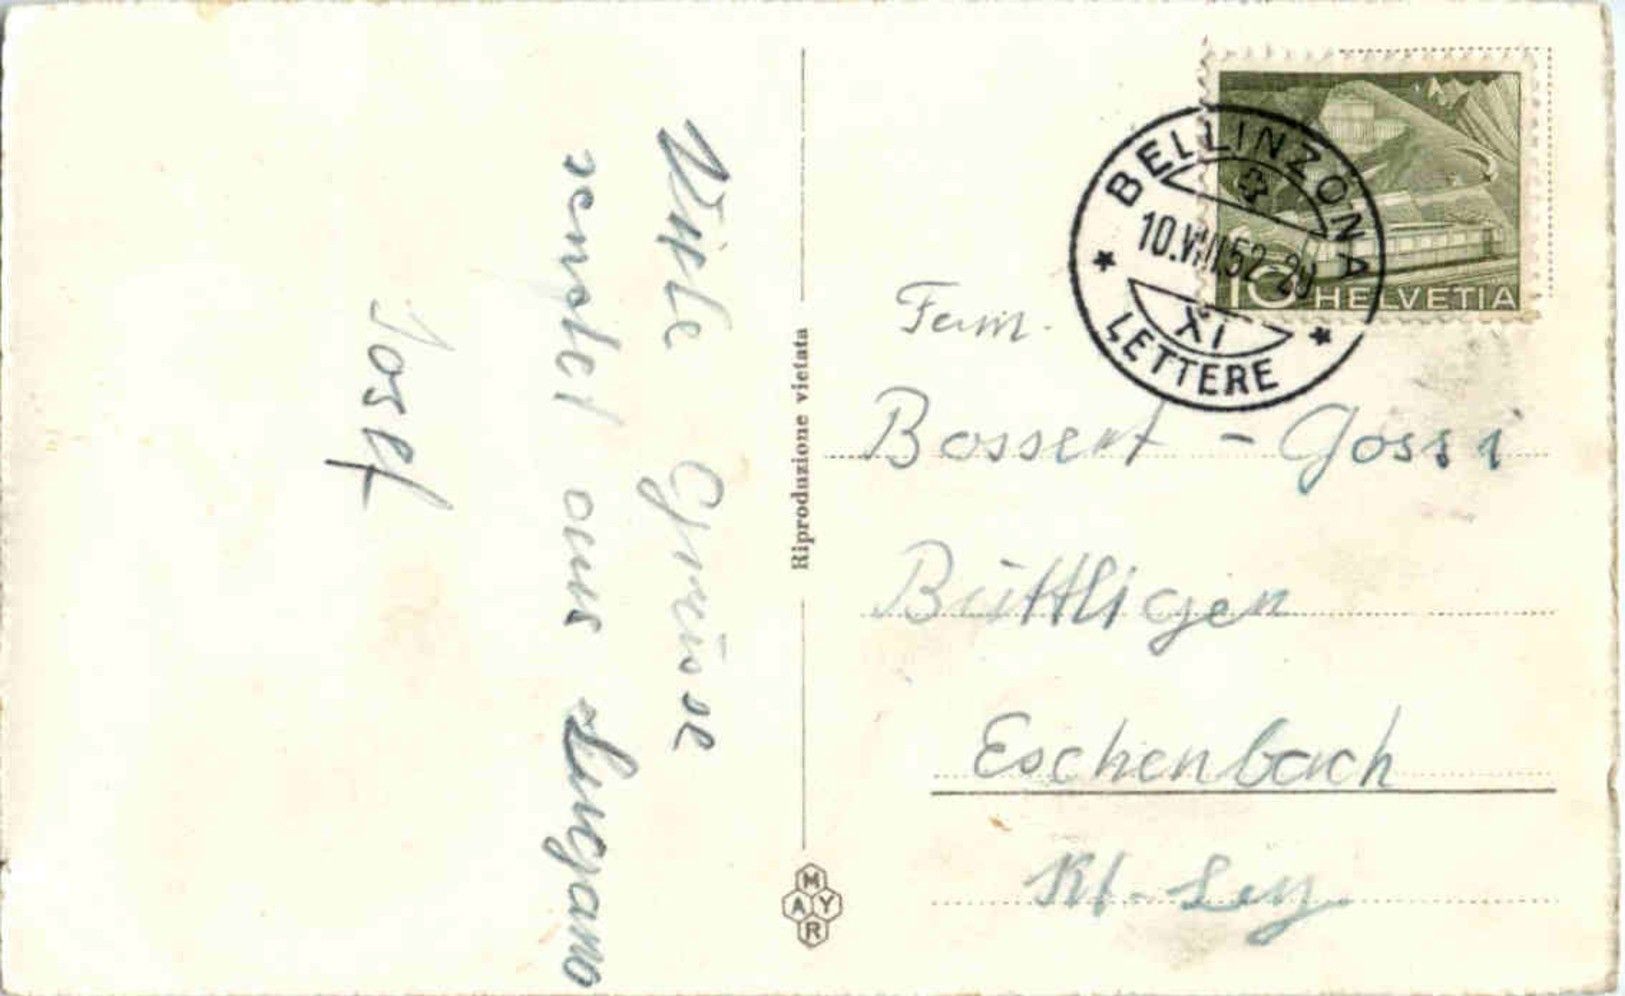 Viele Grüsse
sendet aus Lugano
Josef
Riproduzione vietata
MAYR
BELLINZONA
10.VIII.52-20
XI
LETTERE
10 HELVETIA
Fam.
Bossert - Gossi
Büttligen
Eschenbach
Kt.